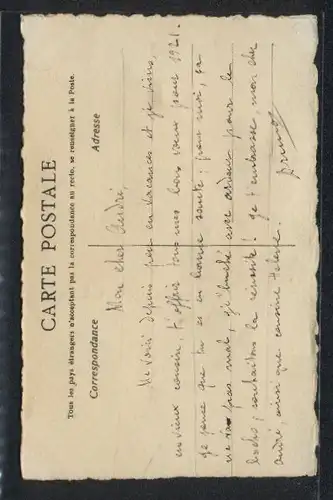 CARTE POSTALE
Tous les pays étrangers n'acceptant pas la correspondance au recto, se renseigner à la Poste.
Correspondance
Adresse
Mon cher André,
Me voici depuis peu en vacances et je viens,
en vieux cousin, t'offrir tous mes bons vœux pour 1921.
je pense que tu es en bonne santé; pour moi, ça
ne va pas mal, je bûche avec ardeur pour le
bacho, souhaitons la réussite! je t'embrasse, mon cher
André, ainsi que cousine Hélène!